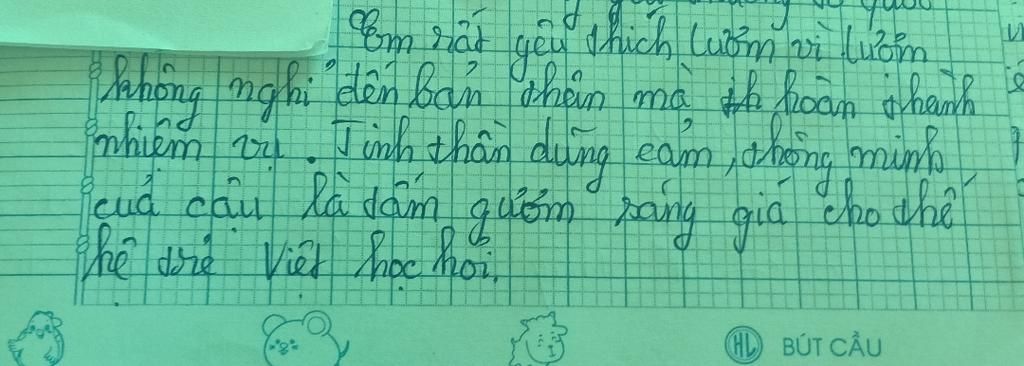 Em rất yêu thích Lượm vì Lượm
không nghỉ đến bản thân mà th hoàn thành
nhiệm vụ. Tinh thần dũng cảm, thông minh
cuả cậu là dấm gươm sáng giá cho thế
hệ trẻ Việt học hỏi.
HL BÚT CẦU